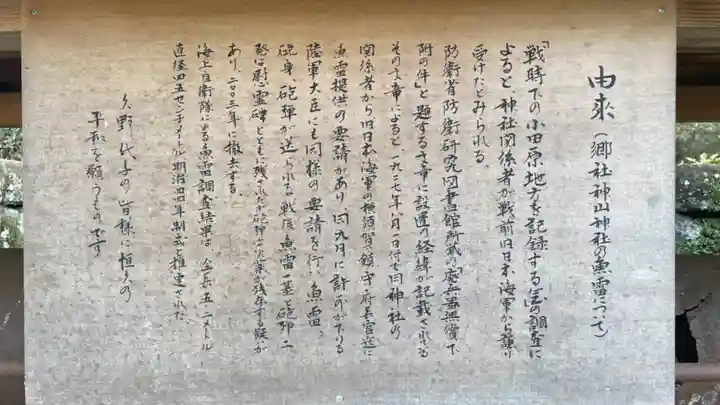 由来(郷社神山神社の魚雷について)
「戦時下の小田原地方を記録する会」の調査に
よると神社関係者が戦前旧日本海軍から譲り
受けたとみられる。
防衛省防衛研究図書館所蔵の「廃兵器無償下
附の件」と題する文章に設置の経緯が記載されてる
その文章によると一九三七年八月一日付で同神社の
関係者から旧日本海軍の横須賀鎮守府長官宛に
魚雷提供の要請があり、同九月に許可がでてる
陸軍大臣にも同様の要請を行い魚雷、
砲身、砲弾が送られる戦后魚雷一基と砲弾二
発は慰心霊碑とともに残されたが砲弾は火薬が残存する疑が
あり、二〇〇三年に撤去する
海上自衛隊による魚雷調査結果は、全長五、二メートル
直径四五センチメートル明治四四年制式と推定された
久野代子の皆様に恒久の
平和を願うものです